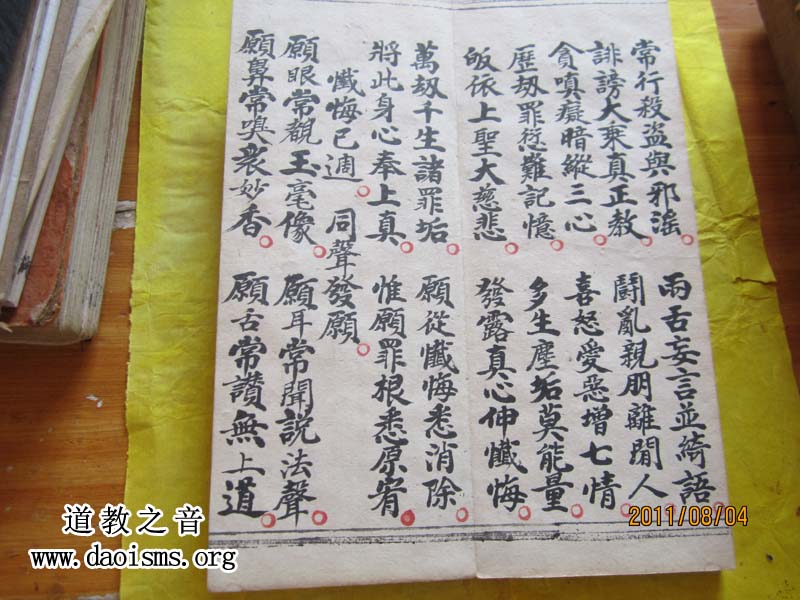 常行殺盜與邪滛 兩舌妄言並綺語
誹謗大乘真正教 鬪亂親朋離閒人
貪嗔癡暗縱三心 喜怒愛惡增七情
歷刼罪愆難記憶 多生塵垢莫能量
皈依上聖大慈悲 發露真心伸懺悔
萬刼千生諸罪垢 願從懺悔悉消除
將此身心奉上真 惟願罪根悉原宥
懺悔已週 同聲發願
願眼常覩玉毫像 願耳常聞說法聲
願鼻常嗅衆妙香 願舌常讚無上道
2011/08/04
道教之音
www.daoisms.org